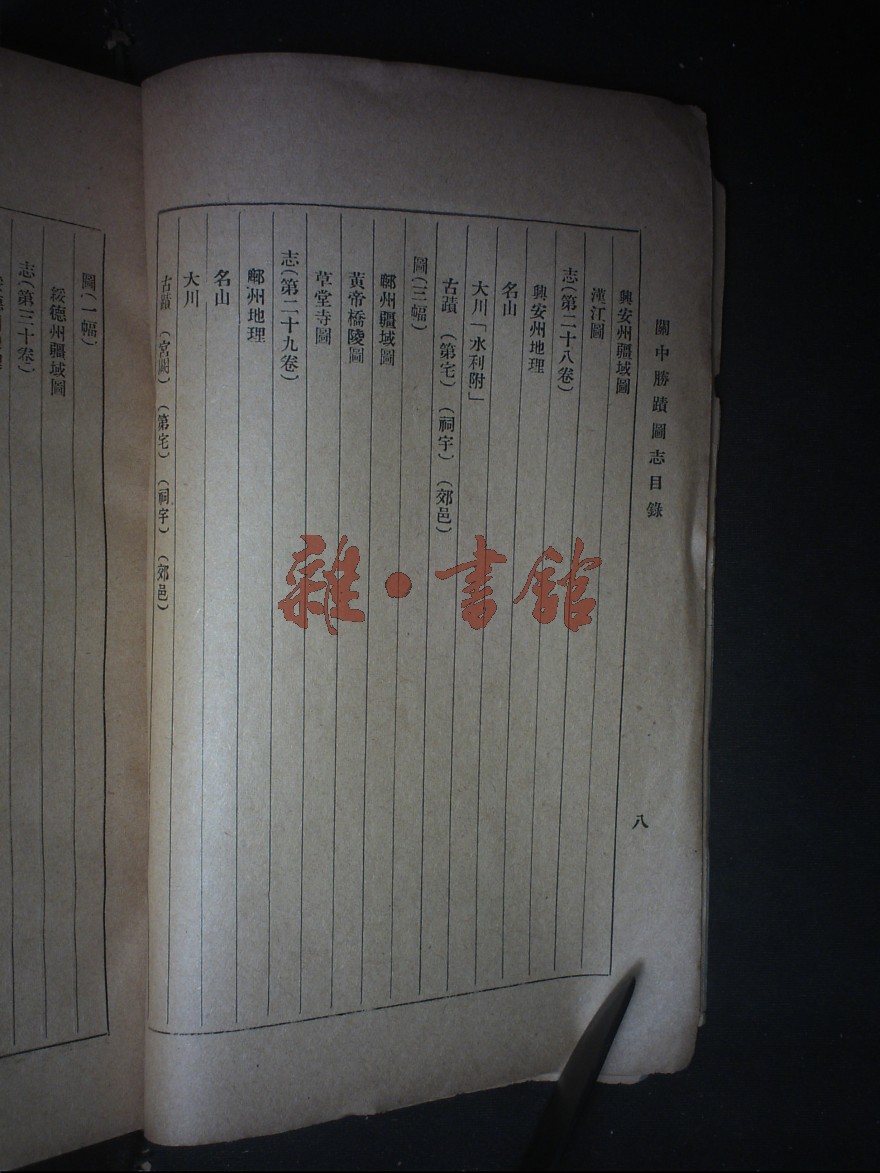 關中勝蹟圖志目錄
八
興安州疆域圖
漢江圖
志(第二十八卷)
興安州地理
名山
大川「水利附」
古蹟 (第宅) (祠宇) (郊邑)
圖(三幅)
鄜州疆域圖
黃帝橋陵圖
草堂寺圖
志(第二十九卷)
鄜州地理
名山
大川
古蹟 (宮闕) (第宅) (祠宇) (郊邑)
圖(一幅)
綏德州疆域圖
志(第三十卷)
雜·書館